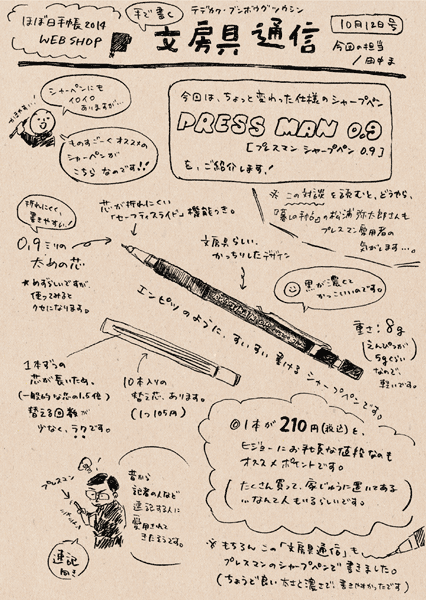 ほぼ日手帳2014
WEB SHOP
手で書く
テデカク・ブンボウグツウシン
文房具通信
10月12日号
今回の担当
/田中ま
シャーペンにも
イロイロ
ありますが…
ものすごーくオススメの
シャーペンが
こちらなのです!!
今回は、ちょっと変わった仕様のシャープペン
PRESS MAN 0.9
[プレスマン シャープペン 0.9]
を、ご紹介します!
※この対談を読むと、どうやら、
『暮しの手帖』の松浦弥太郎さんも
プレスマン愛用者の
気がします…。
折れにくく、
書きやすい!
0.9ミリの
太めの芯
★めずらしいですが、
使ってみると
クセになります。
芯が折れにくい
「セーフティスライド」機能つき。
文房具らしい、
かっちりしたデザイン
黒が濃くて
かっこいいのです。
エンピツのように、すいすい書けるシャープペンです。
重さ:8g
(えんぴつが
5gぐらい
なので、
軽いです。)
1本ずつの
芯が長いため、
(一般的な芯の1.5倍)
替える回数が
少なく、ラクです。
10本入りの
替え芯、あります。
(1つ105円)
◎1本が210円(税込)と、
ヒジョーにお手頃な値段なのも
オススメポイントです。
(たくさん買って、家じゅうに置いてある
…なんて人もいるらしいです。)
プレスマン
昔から
記者の人など
速記する人に
愛用されて
きたそうです。
速記
向き
※もちろんこの「文房具通信」も
プレスマンのシャープペンで書きました。
(ちょうど良い太さと濃さで、書きやすかったです)